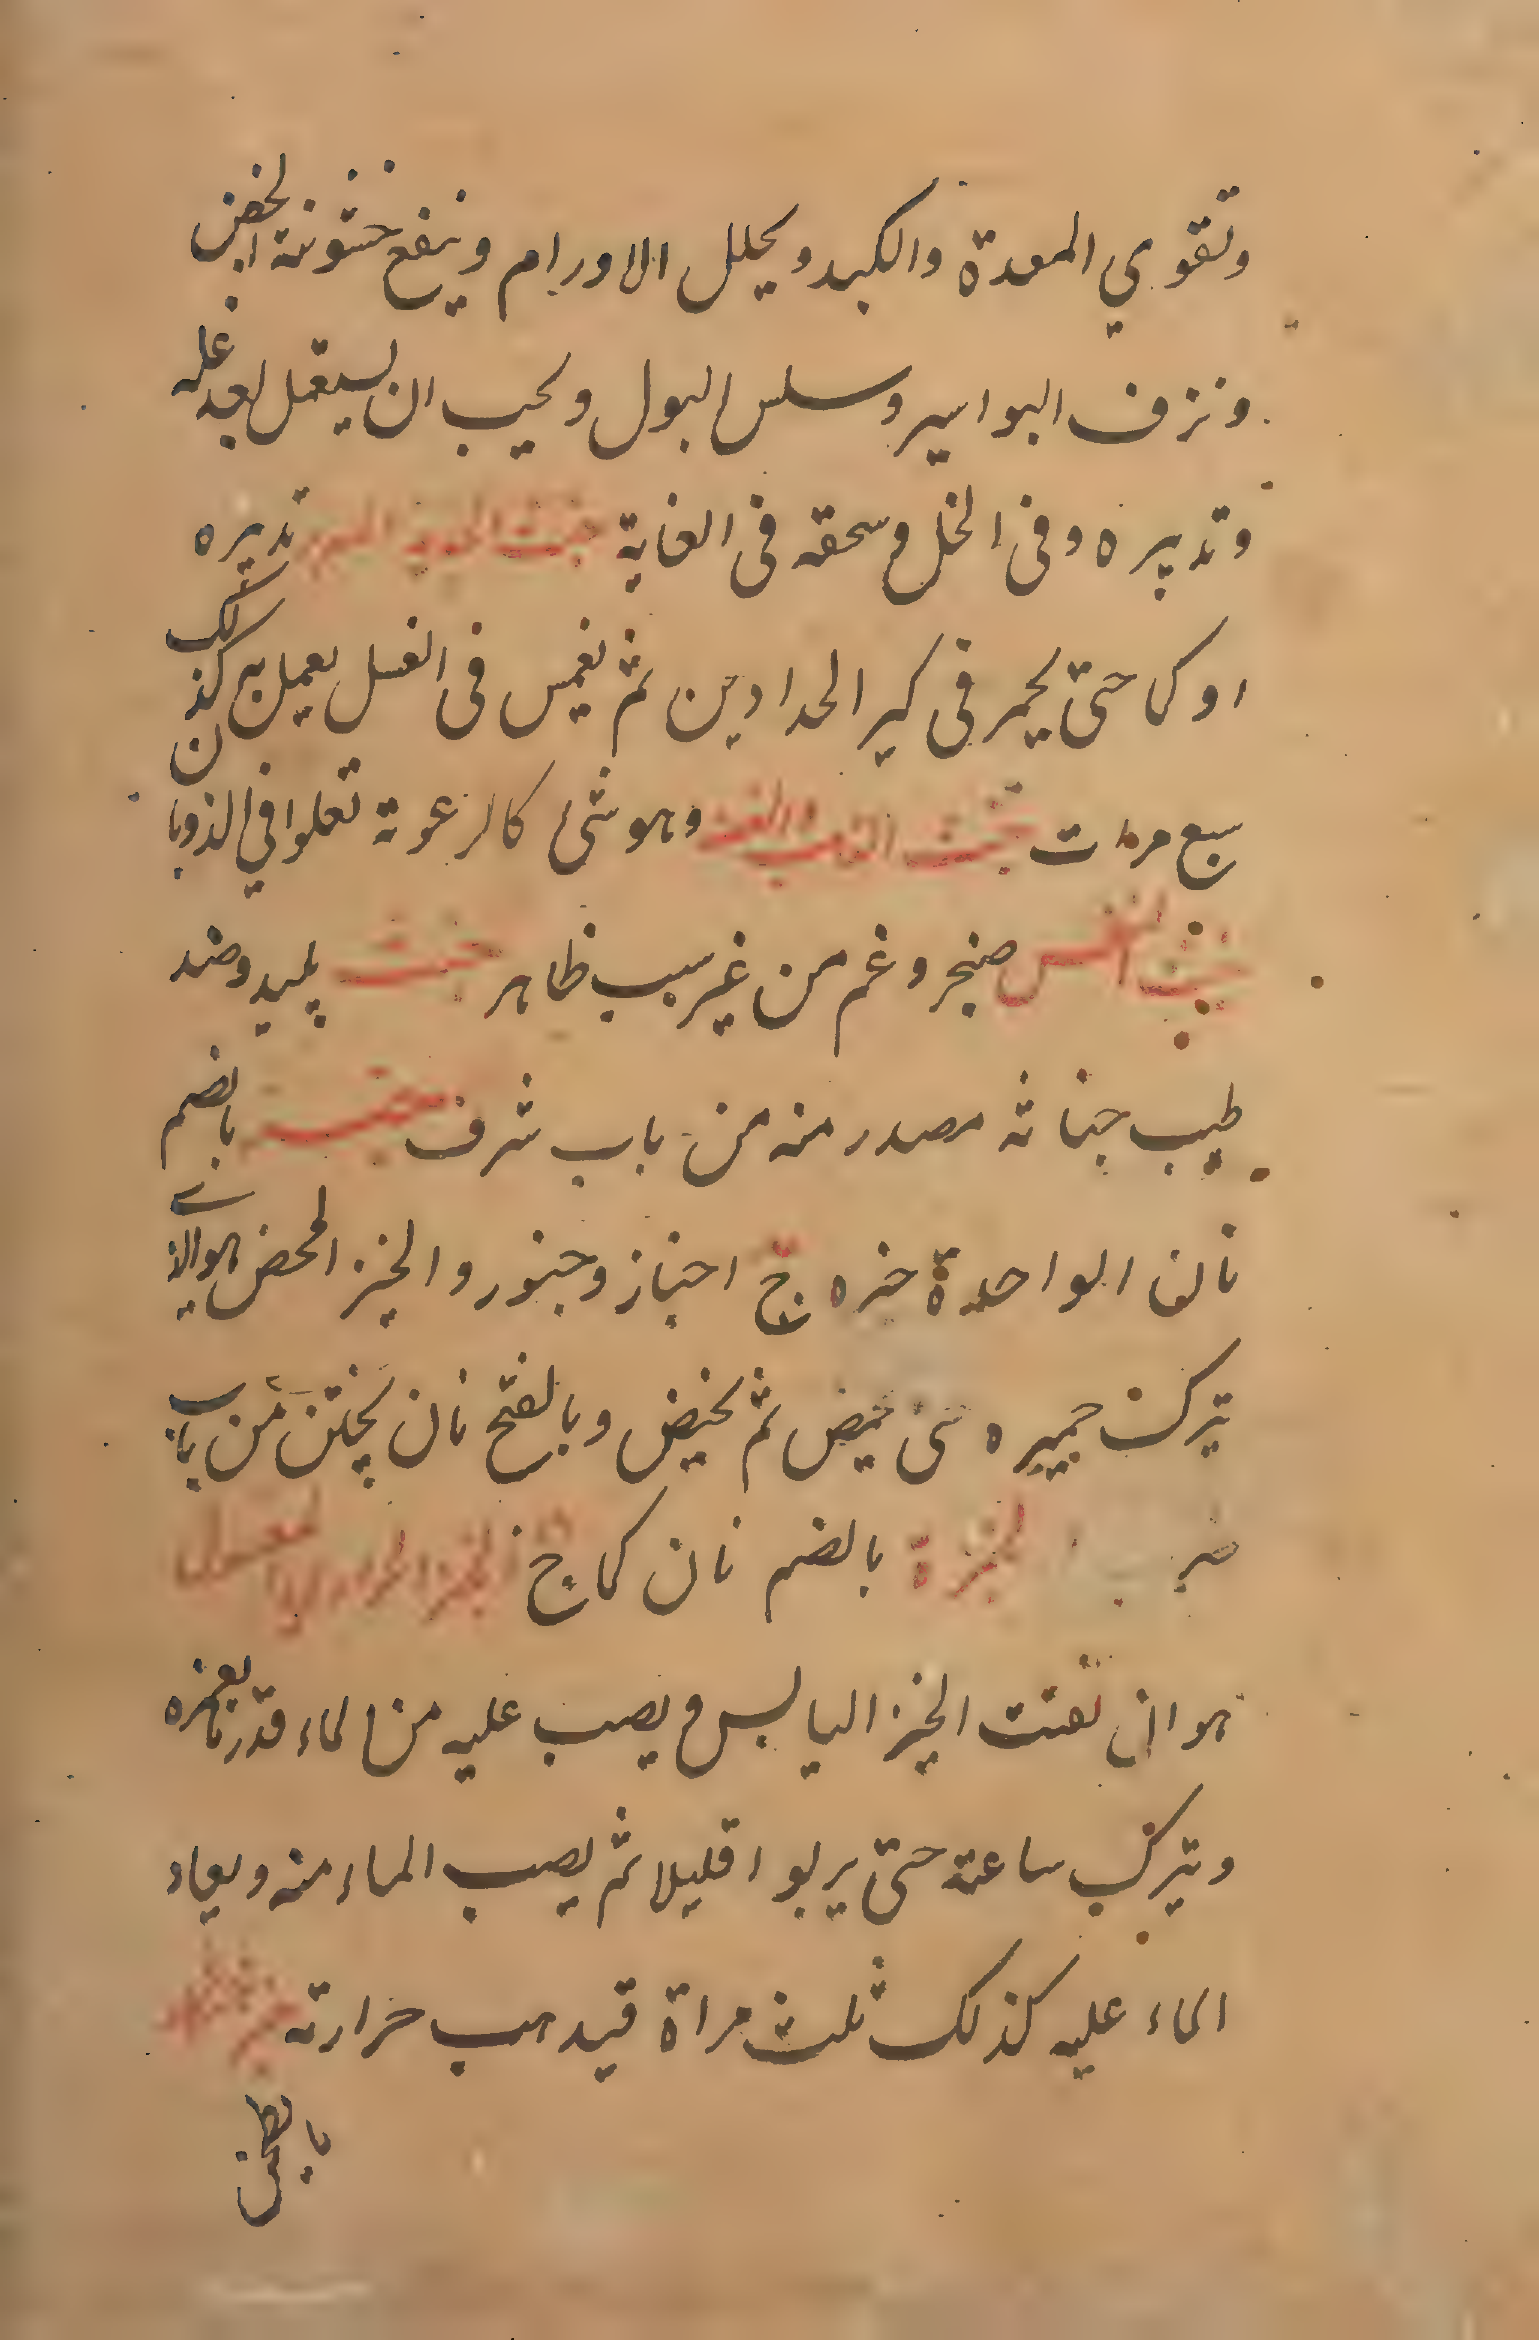 وتقوي المعدة والكبد ويحلل الاورام وينفع خشونة الجفن
ونزف البواسير وسلس البول ويجب ان يستعمل بعد غله
وتدبيره وفى الخل وسحقه فى الغاية خبث الحديد المدبر تدبيره
او كا حتى يحمر فى كير الحدادين ثم يغمس فى العسل يعمل به كذلك
سبع مرات خبث الذهب والفضة وهو شئ كالرغوة تعلوا في الذوبان
خبث النفس ضجر وغم من غير سبب ظاهر خبث پليد وضد
طيب خباثه مصدر منه من باب شرف خبز بالضم
نان الواحدة خبزه ج اخباز وخبوز والخبز المحض هو الذي
يترك خميره حتى يحمض ثم يخبز وبالفتح نان پختن من باب
ضرب الخبزة بالضم نان كماج الخبز المغسول
هو ان تفتت الخبز اليابس ويصب عليه من الماء قدر ما يغمره
ويترك ساعة حتى يربوا قليلا ثم يصب الماء منه ويعاد
الماء عليه كذلك ثلث مراة فيذهب حرارته
بالطحن